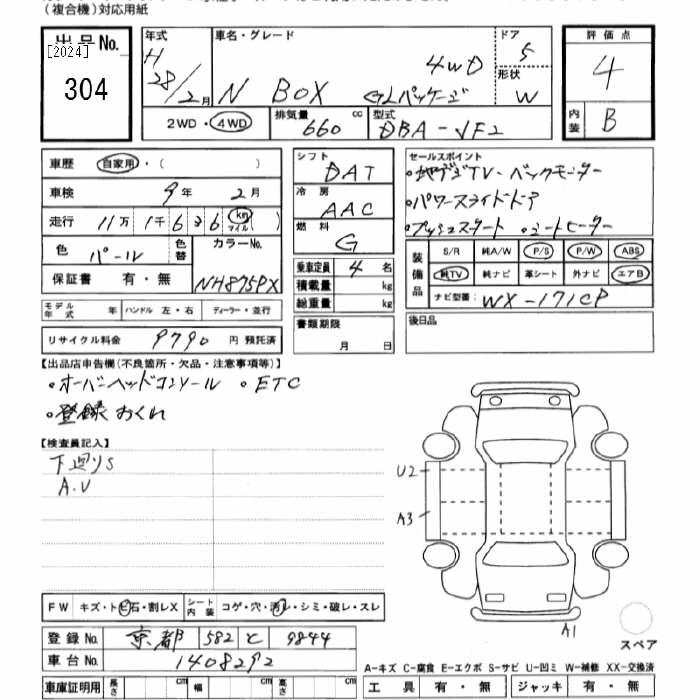 （複合機）対応用紙
出品No.
[2024]
304
年式 H 28/2月
車名・グレード N BOX GLパッケージ 4WD
ドア 5
形状 W
評価点 4
内装 B
2WD・4WD
排気量 660 cc
型式 DBA-JF2
車歴 自家用・（ ）
車検 9年 2月
走行 11万 1千 6 6 km マイル（ ）
色 パール 色替
カラーNo. NH875PX
保証書 有・無
モデル年式 年 ハンドル 左・右 ディーラー・並行
リサイクル料金 9790 円 預託済
シフト DAT
冷房 AAC
燃料 G
乗車定員 4 名
積載量 kg
総重量 kg
書類期限 月 日
セールスポイント
TV・バックモニター
・パワースライドドア
・プッシュスタート ・シートヒーター
装備品
S/R 純A/W P/S P/W ABS
純TV 純ナビ 革シート 外ナビ エアB
ナビ型番: WX-171CP
後日品
【出品店申告欄(不良箇所・欠品・注意事項等)】
・オーバーヘッドコンソール ・ETC
・登録おくれ
【検査員記入】
下廻りS
A.U
U2
A3
A1
スペア
FW キズ・トビ石・割レX
シート内装 コゲ・穴・汚レ・シミ・破レ・スレ
登録No. 京都 582 と 9844
車台No. 1408292
車庫証明用 長さ cm 幅 cm 高さ cm
A-キズ C-腐食 E-エクボ S-サビ U-凹ミ W-補修 XX-交換済
工具 有・無 ジャッキ 有・無